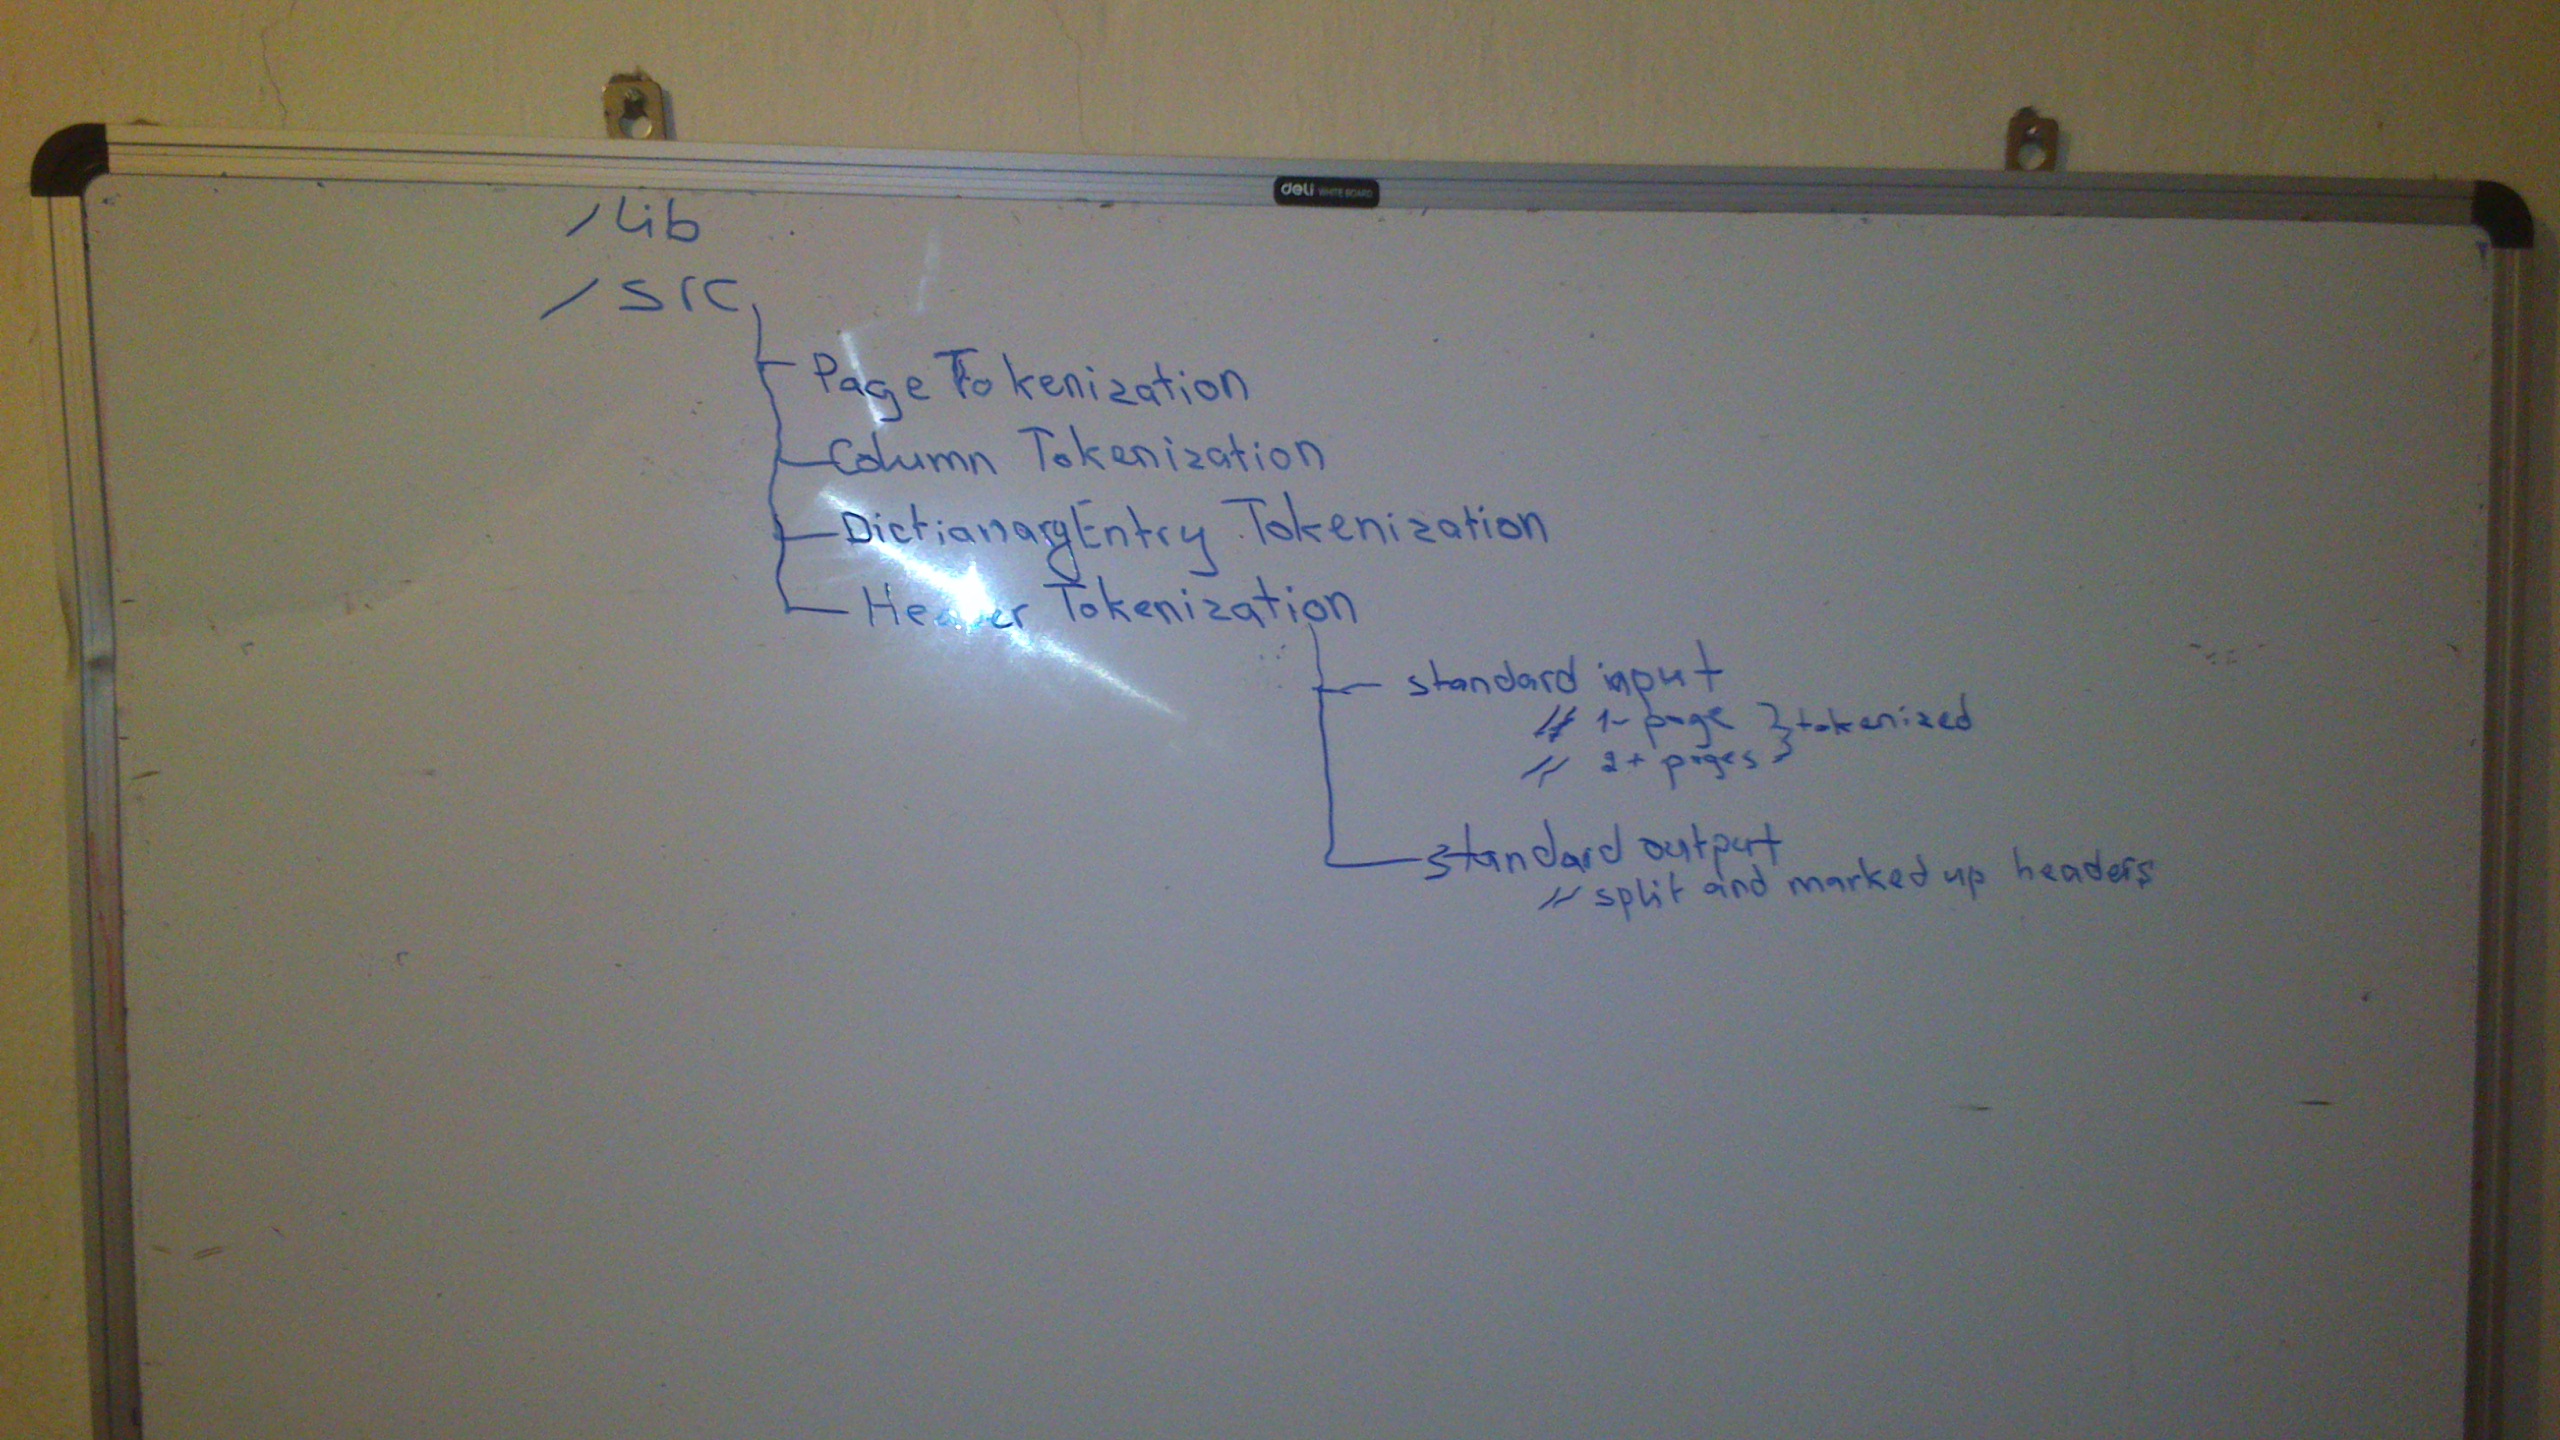 deli WHITE BOARD
/lib
/src
Page Tokenization
Column Tokenization
DictianaryEntry Tokenization
Header Tokenization
standard input
// 1- page } tokenized
// 2+ pages
standard output
// split and marked up headers